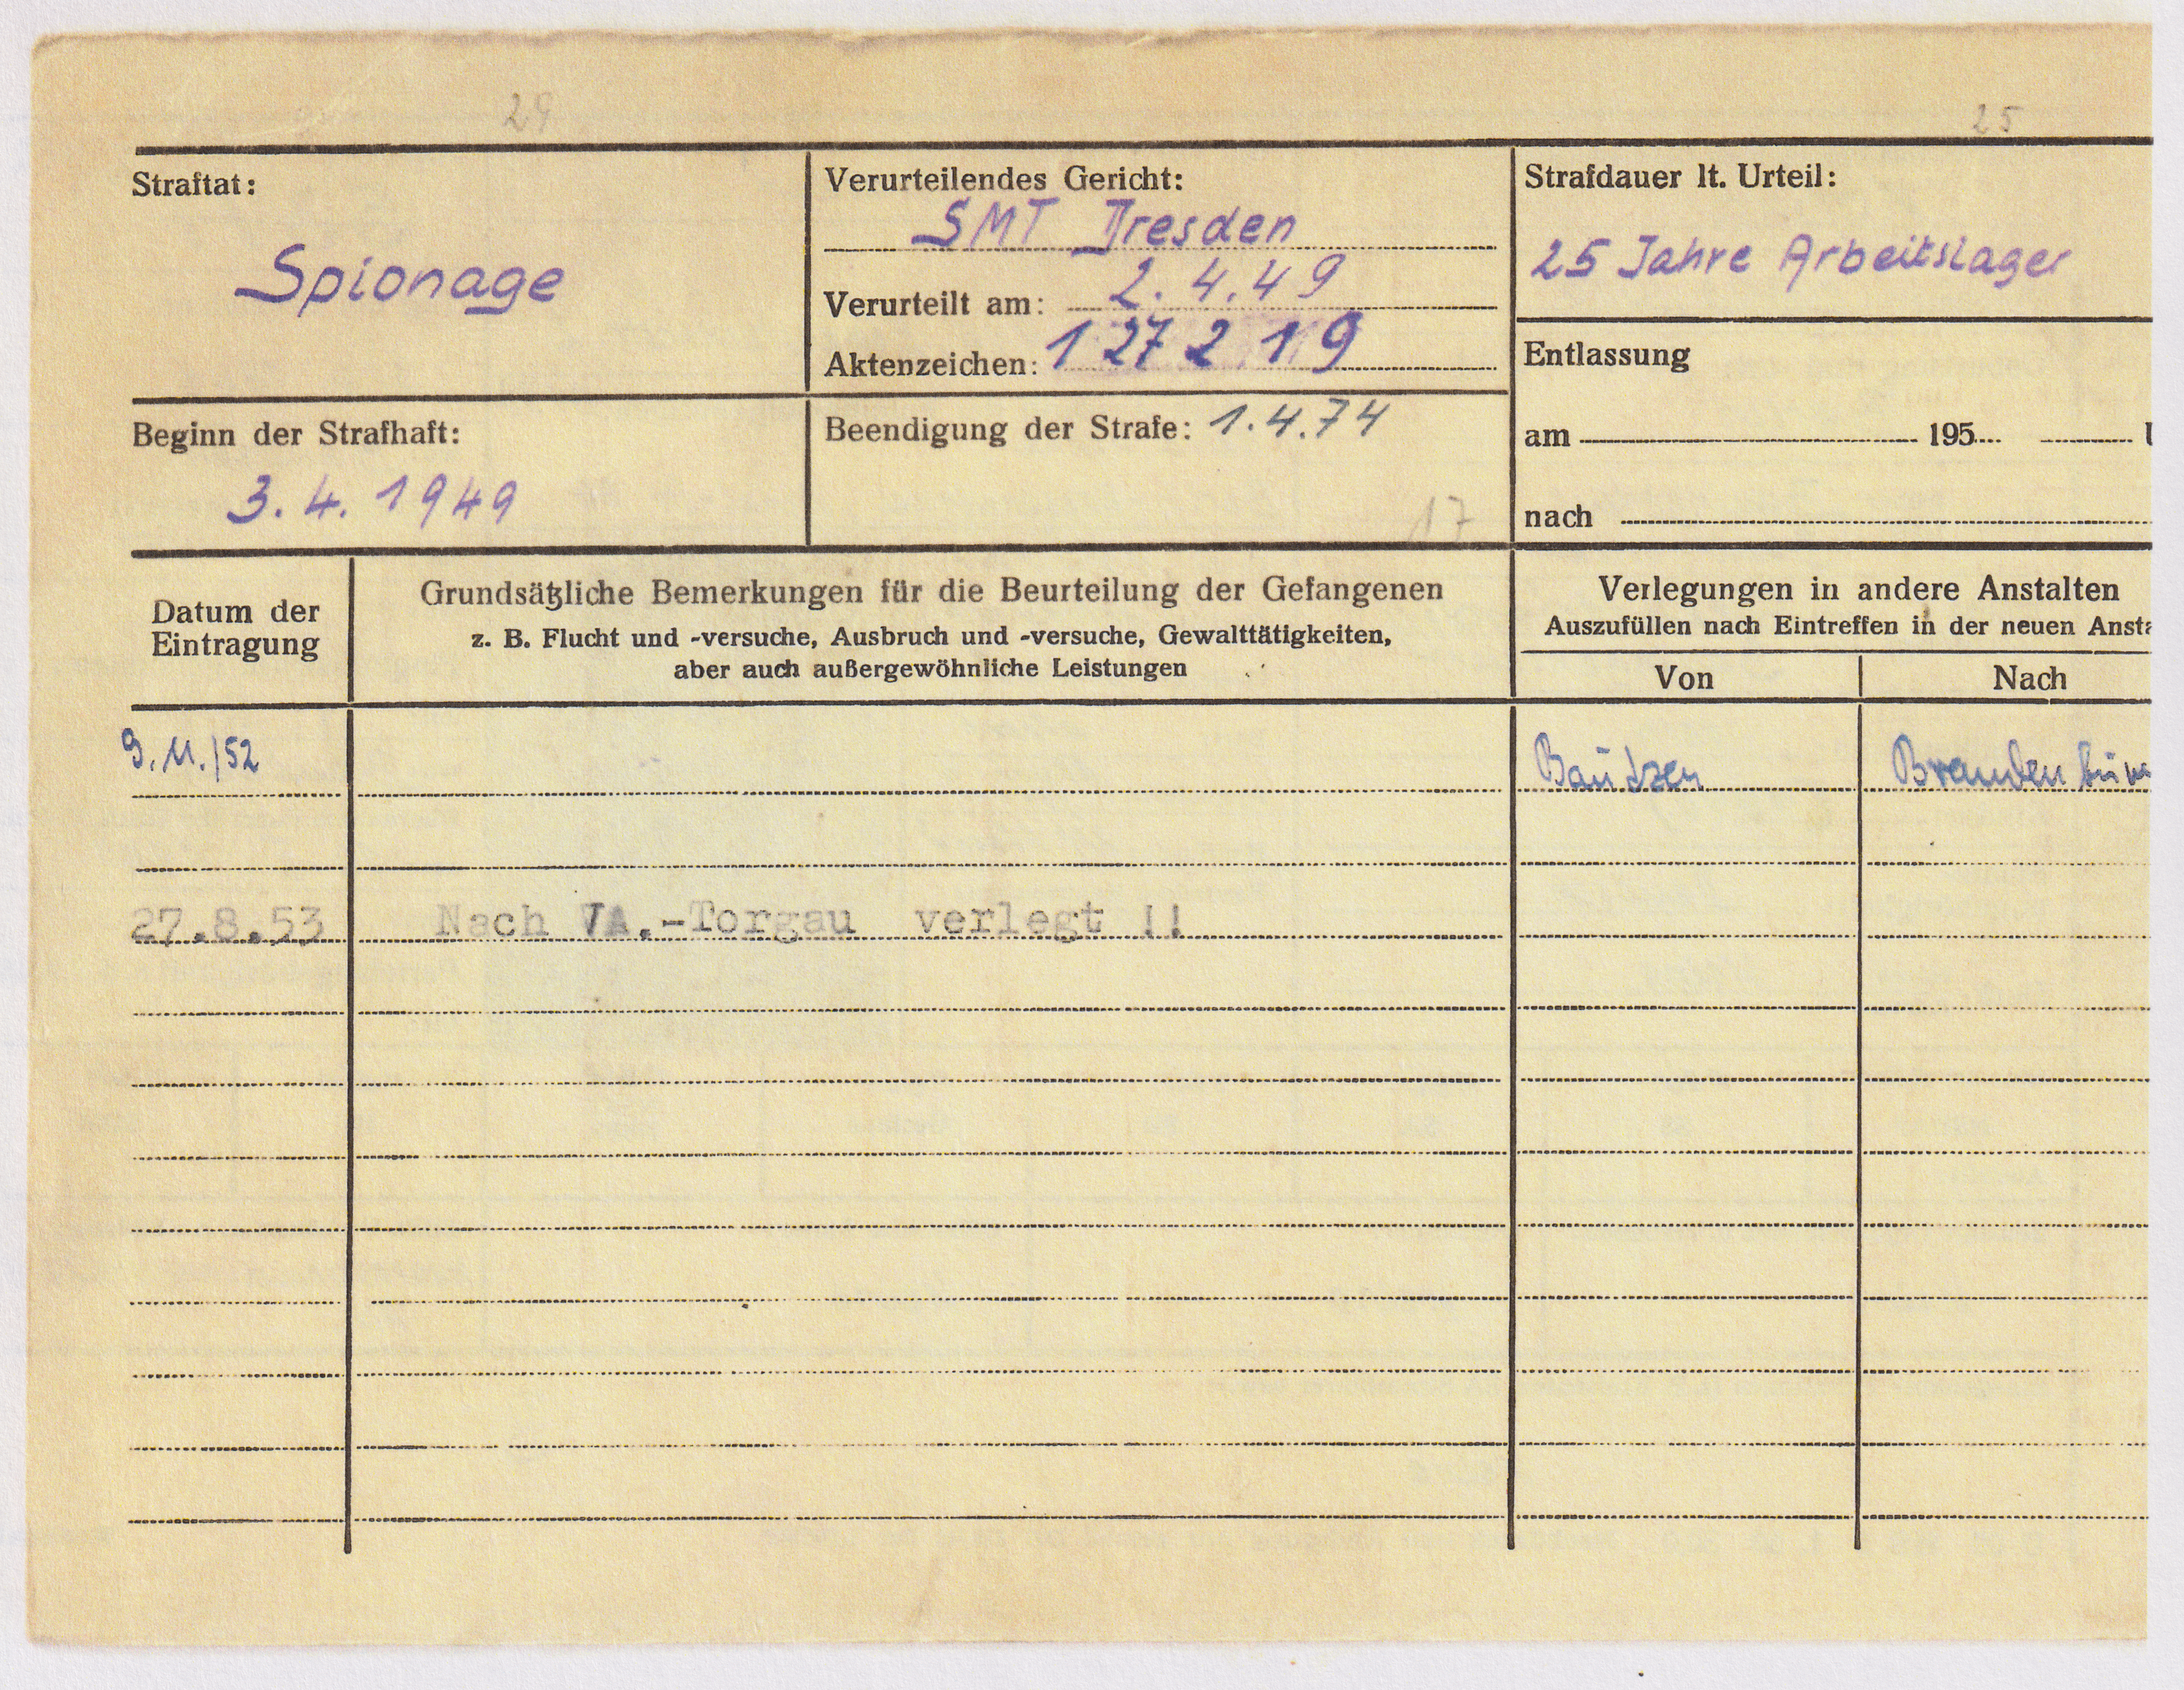 29
25
Straftat:
Spionage
Verurteilendes Gericht:
SMT Dresden
Verurteilt am: 2.4.49
Aktenzeichen: 127219
Strafdauer lt. Urteil:
25 Jahre Arbeitslager
Entlassung
am 195
nach
Beginn der Strafhaft:
3.4.1949
Beendigung der Strafe: 1.4.74
17
Datum der
Eintragung
Grundsätzliche Bemerkungen für die Beurteilung der Gefangenen
z. B. Flucht und -versuche, Ausbruch und -versuche, Gewalttätigkeiten,
aber auch außergewöhnliche Leistungen
Verlegungen in andere Anstalten
Auszufüllen nach Eintreffen in der neuen Ansta
Von
Nach
9.11./52
Bautzen
Brandenbur
27.8.53 Nach VA.-Torgau verlegt !!